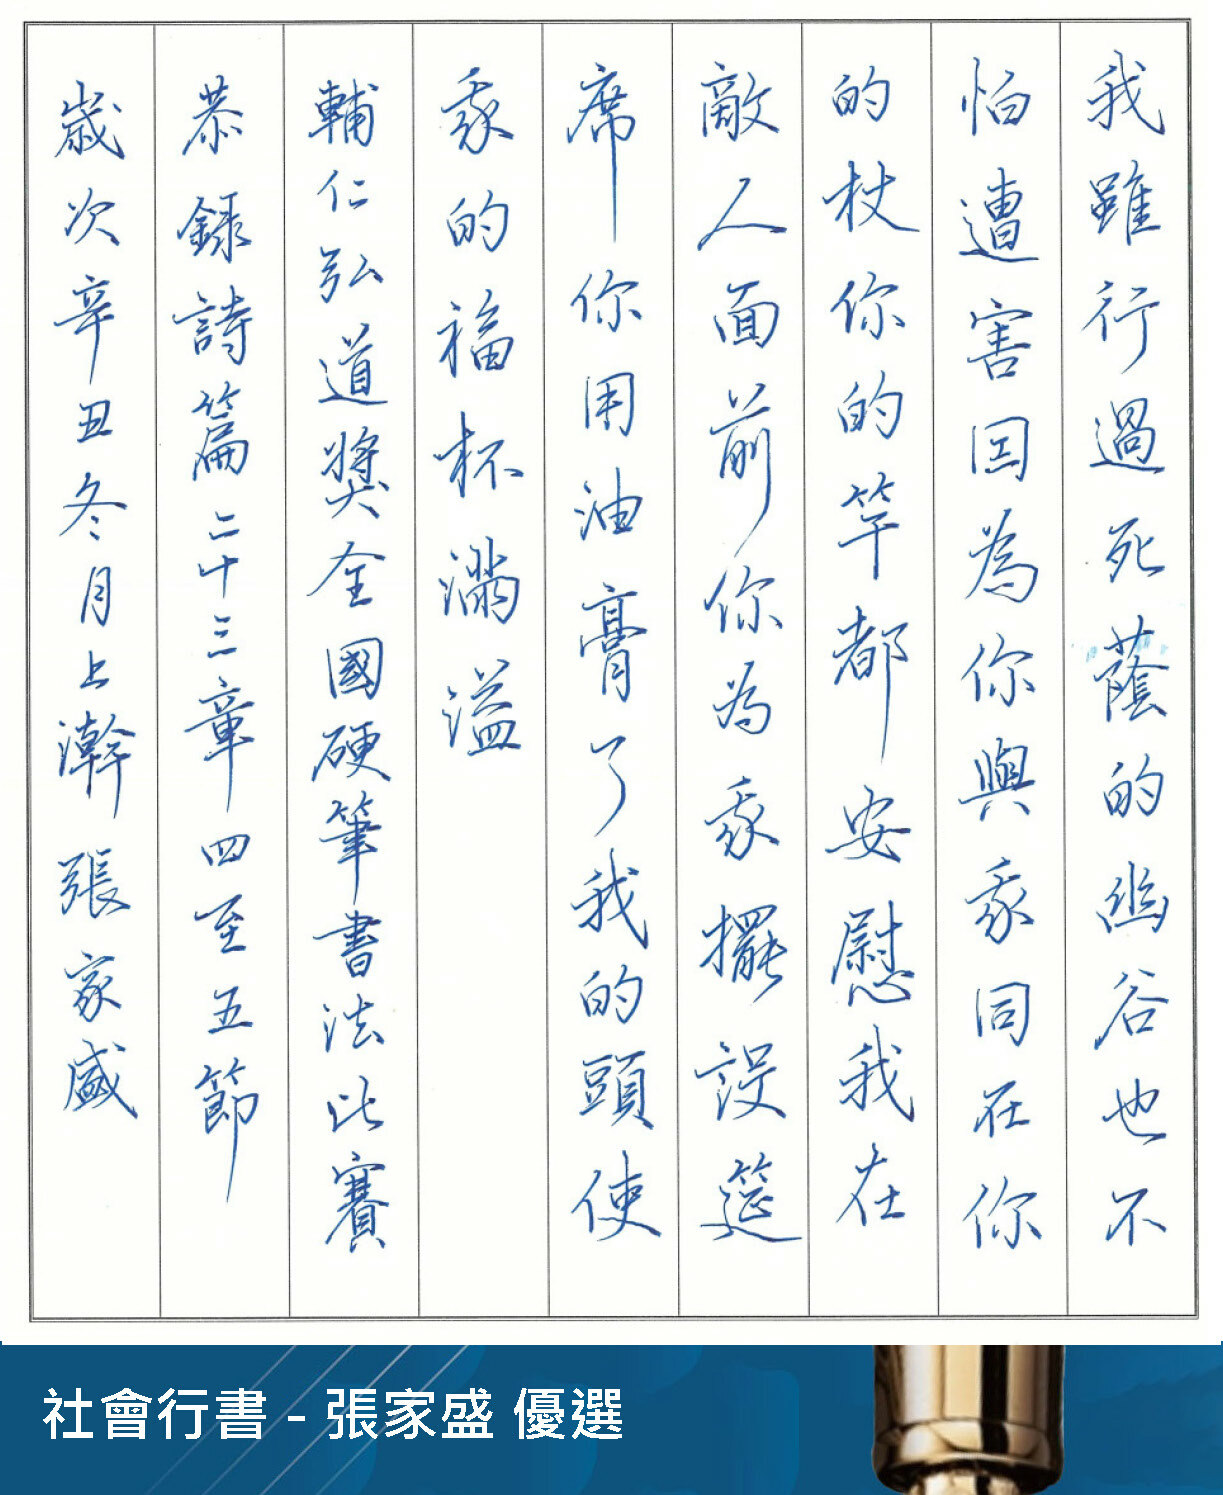 我雖行過死蔭的幽谷也不
怕遭害因為你與我同在你
的杖你的竿都安慰我在
敵人面前你為我擺設筵
席你用油膏了我的頭使
我的福杯滿溢
輔仁弘道獎全國硬筆書法比賽
恭錄詩篇二十三章四至五節
歲次辛丑冬月上澣張家盛
社會行書 - 張家盛 優選